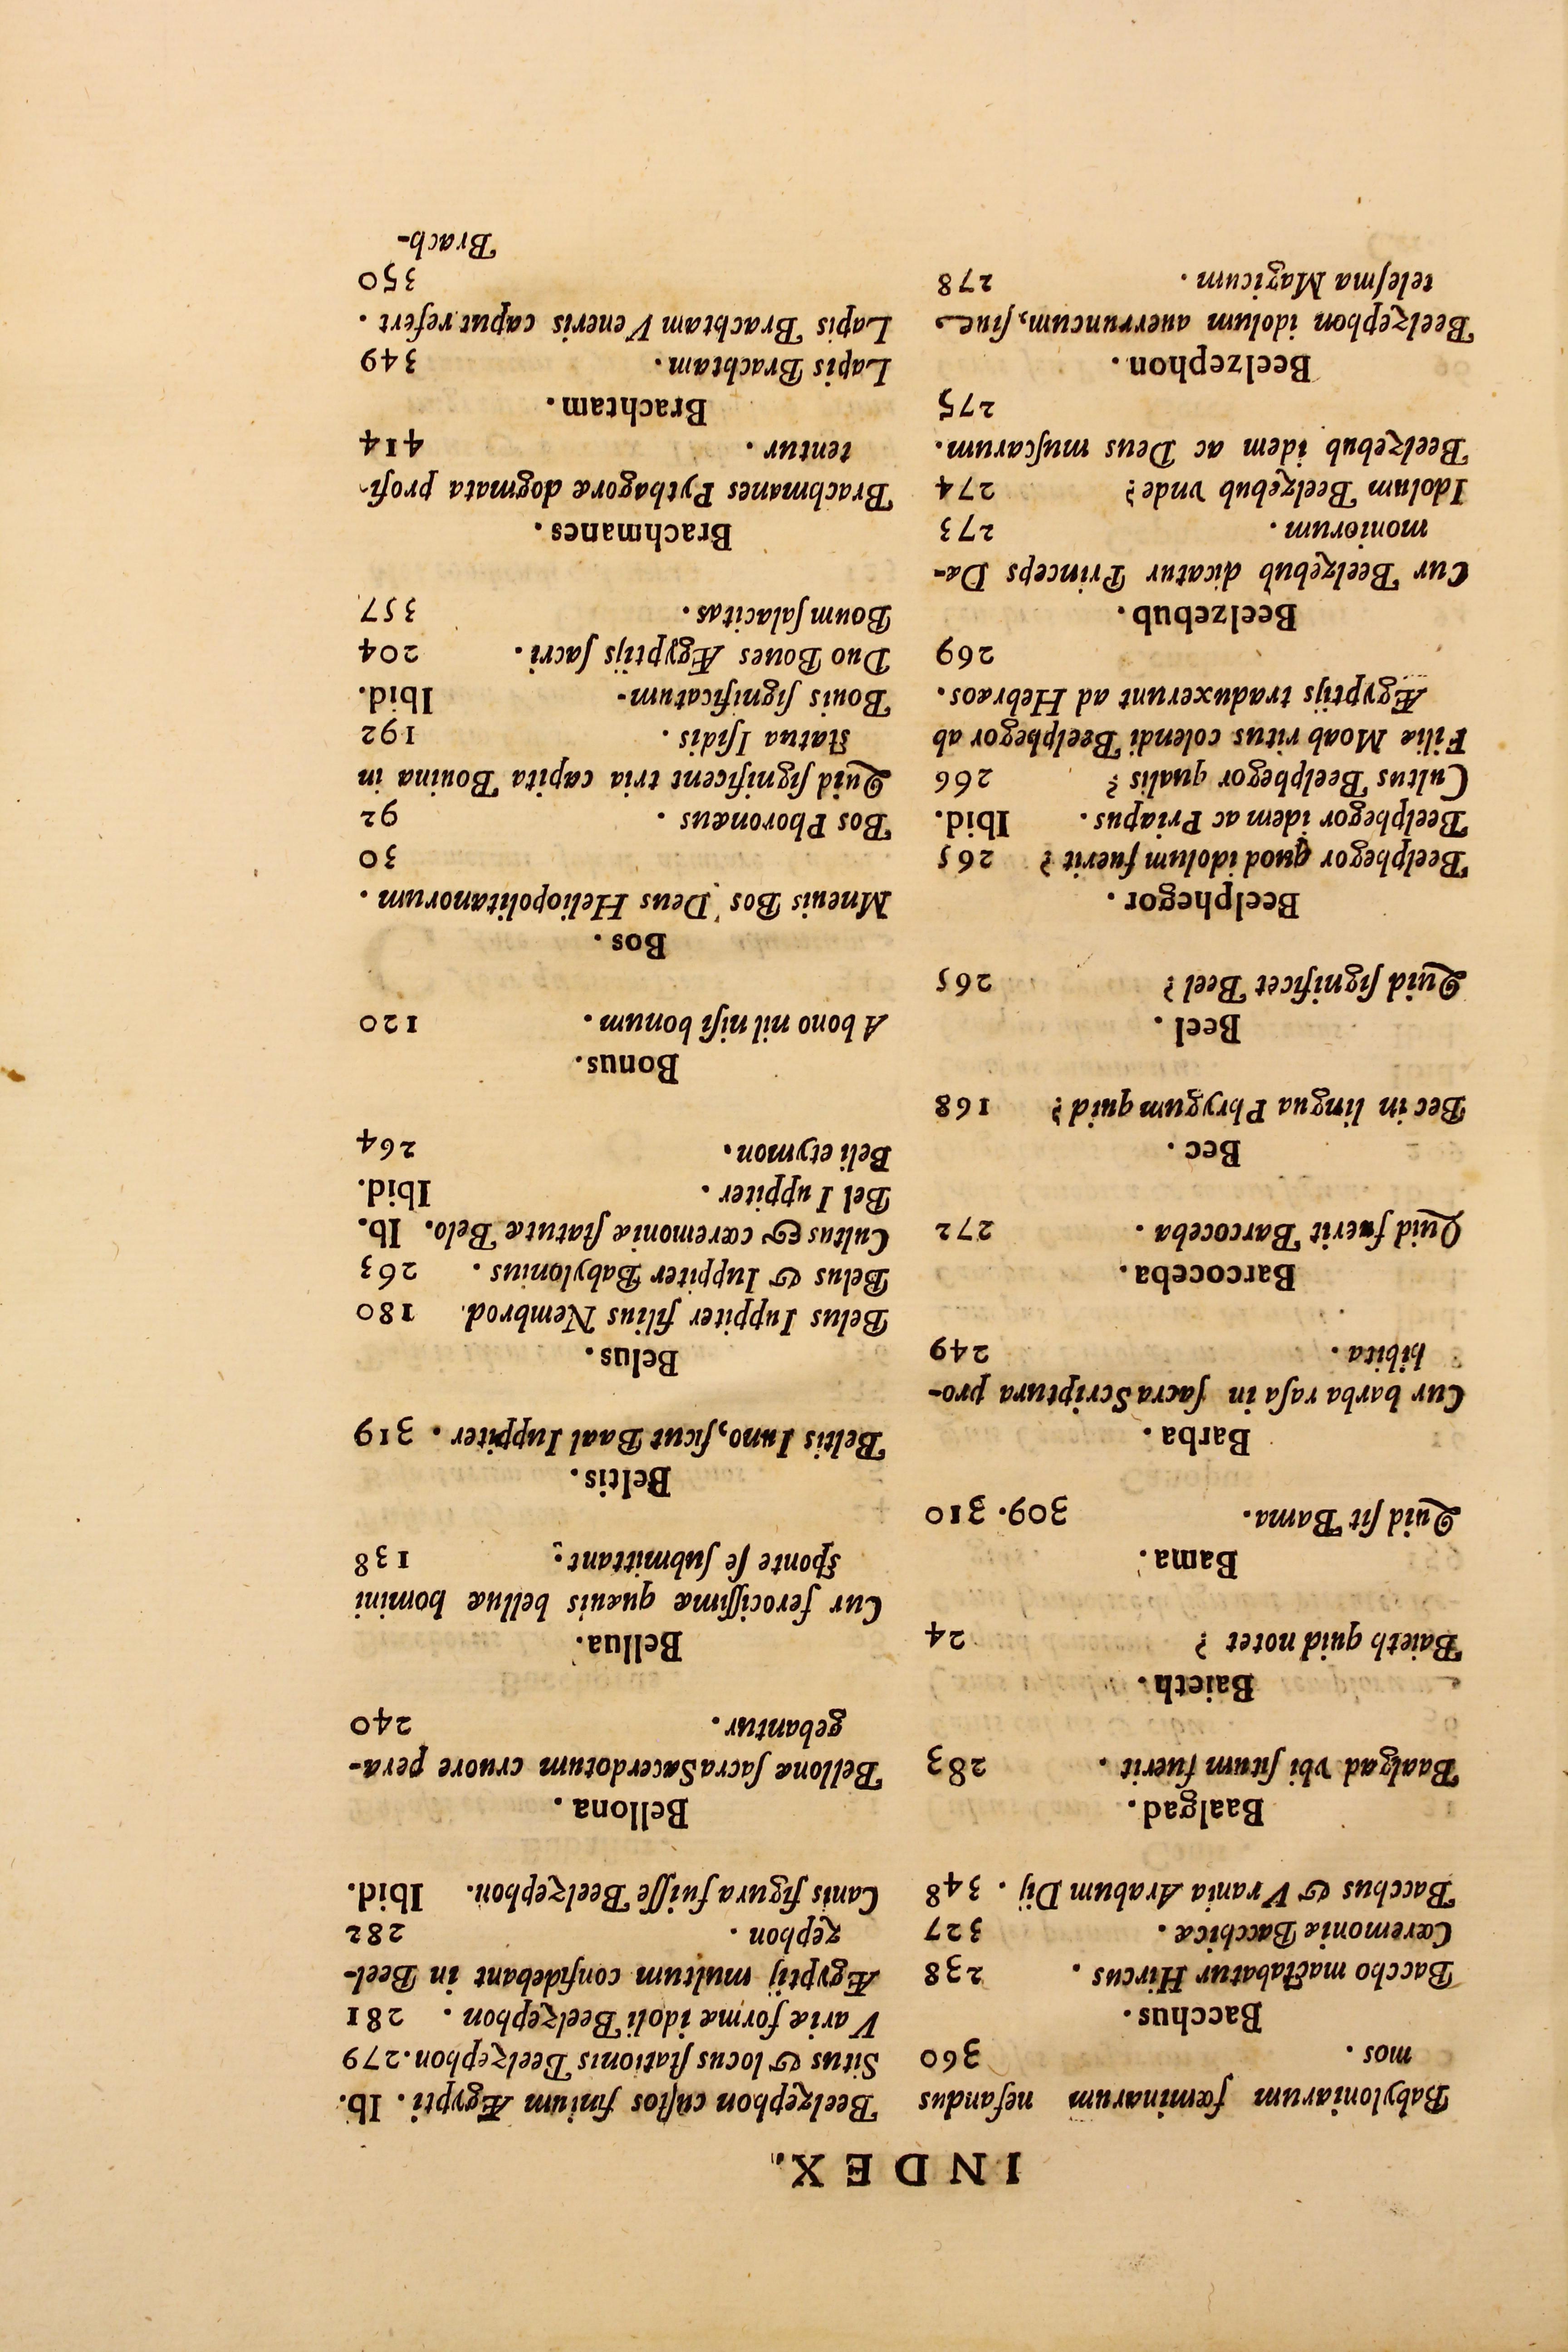 INDEX.
Babyloniarum fœminarum nefandus
mos . 360
Bacchus.
Baccho mactabatur Hircus . 238
Cæremoniæ Bacchicæ . 327
Bacchus & Vrania Arabum Dij . 348
Baalgad.
Baalgad vbi situm fuerit . 283
Baieth.
Baieth quid notet ? 24
Bama.
Quid sit Bama. 309. 310
Barba .
Cur barba rasa in sacra Scriptura pro-
hibita . 249
Barcoceba.
Quid fuerit Barcoceba . 272
Bec .
Bec in lingua Phrygum quid ? 168
Beel .
Quid significet Beel ? 265
Beelphegor .
Beelphegor quod idolum fuerit ? 265
Beelphegor idem ac Priapus . Ibid.
Cultus Beelphegor qualis ? 266
Filiæ Moab ritus colendi Beelphegor ab
Ægyptijs traduxerunt ad Hebræos. 269
Beelzebub.
Cur Beelzebub dicatur Princeps Dæ-
moniorum . 273
Idolum Beelzebub vnde ? 274
Beelzebub idem ac Deus muscarum. 275
Beelzephon.
Beelzephon idolum auerruncum, siue
telesma Magicum . 278
Beelzephon custos finium Ægypti . Ib.
Situs & locus stationis Beelzephon. 279
Variæ formæ idoli Beelzephon . 281
Ægyptij multum confidebant in Beel-
zephon . 282
Canis figura fuisse Beelzephon. Ibid.
Bellona .
Bellonæ sacra Sacerdotum cruore pera-
gebantur . 240
Bellua.
Cur ferocissimæ quæuis belluæ homini
sponte se submittant ; 138
Beltis.
Beltis Iuno, sicut Baal Iuppiter . 319
Belus.
Belus Iuppiter filius Nembrod. 180
Belus & Iuppiter Babylonius . 263
Cultus & cæremoniæ statutæ Belo. Ib.
Bel Iuppiter . Ibid.
Beli etymon. 264
Bonus.
A bono nil nisi bonum . 120
Bos .
Mneuis Bos Deus Heliopolitanorum . 30
Bos Phoronæus . 92
Quid significent tria capita Bouina in
statua Isidis . 192
Bouis significatum- Ibid.
Duo Boues Ægyptijs sacri . 204
Boum salacitas . 357
Brachmanes .
Brachmanes Pythagoræ dogmata profi-
tentur . 414
Brachtam .
Lapis Brachtam. 349
Lapis Brachtam Veneris caput refert . 350
Brach-